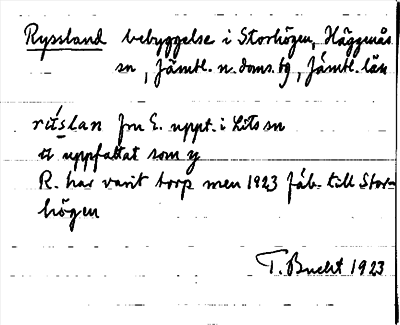 Ryssland bebyggelse i Storhögen, Häggenås
sn, Jämtl. n. doms. tg, Jämtl. län
rıślan fru E. uppt. i Lits sn
uppfattat som y
R. har varit torp men 1923 fäb. till Stor-
högen
T. Bucht 1923